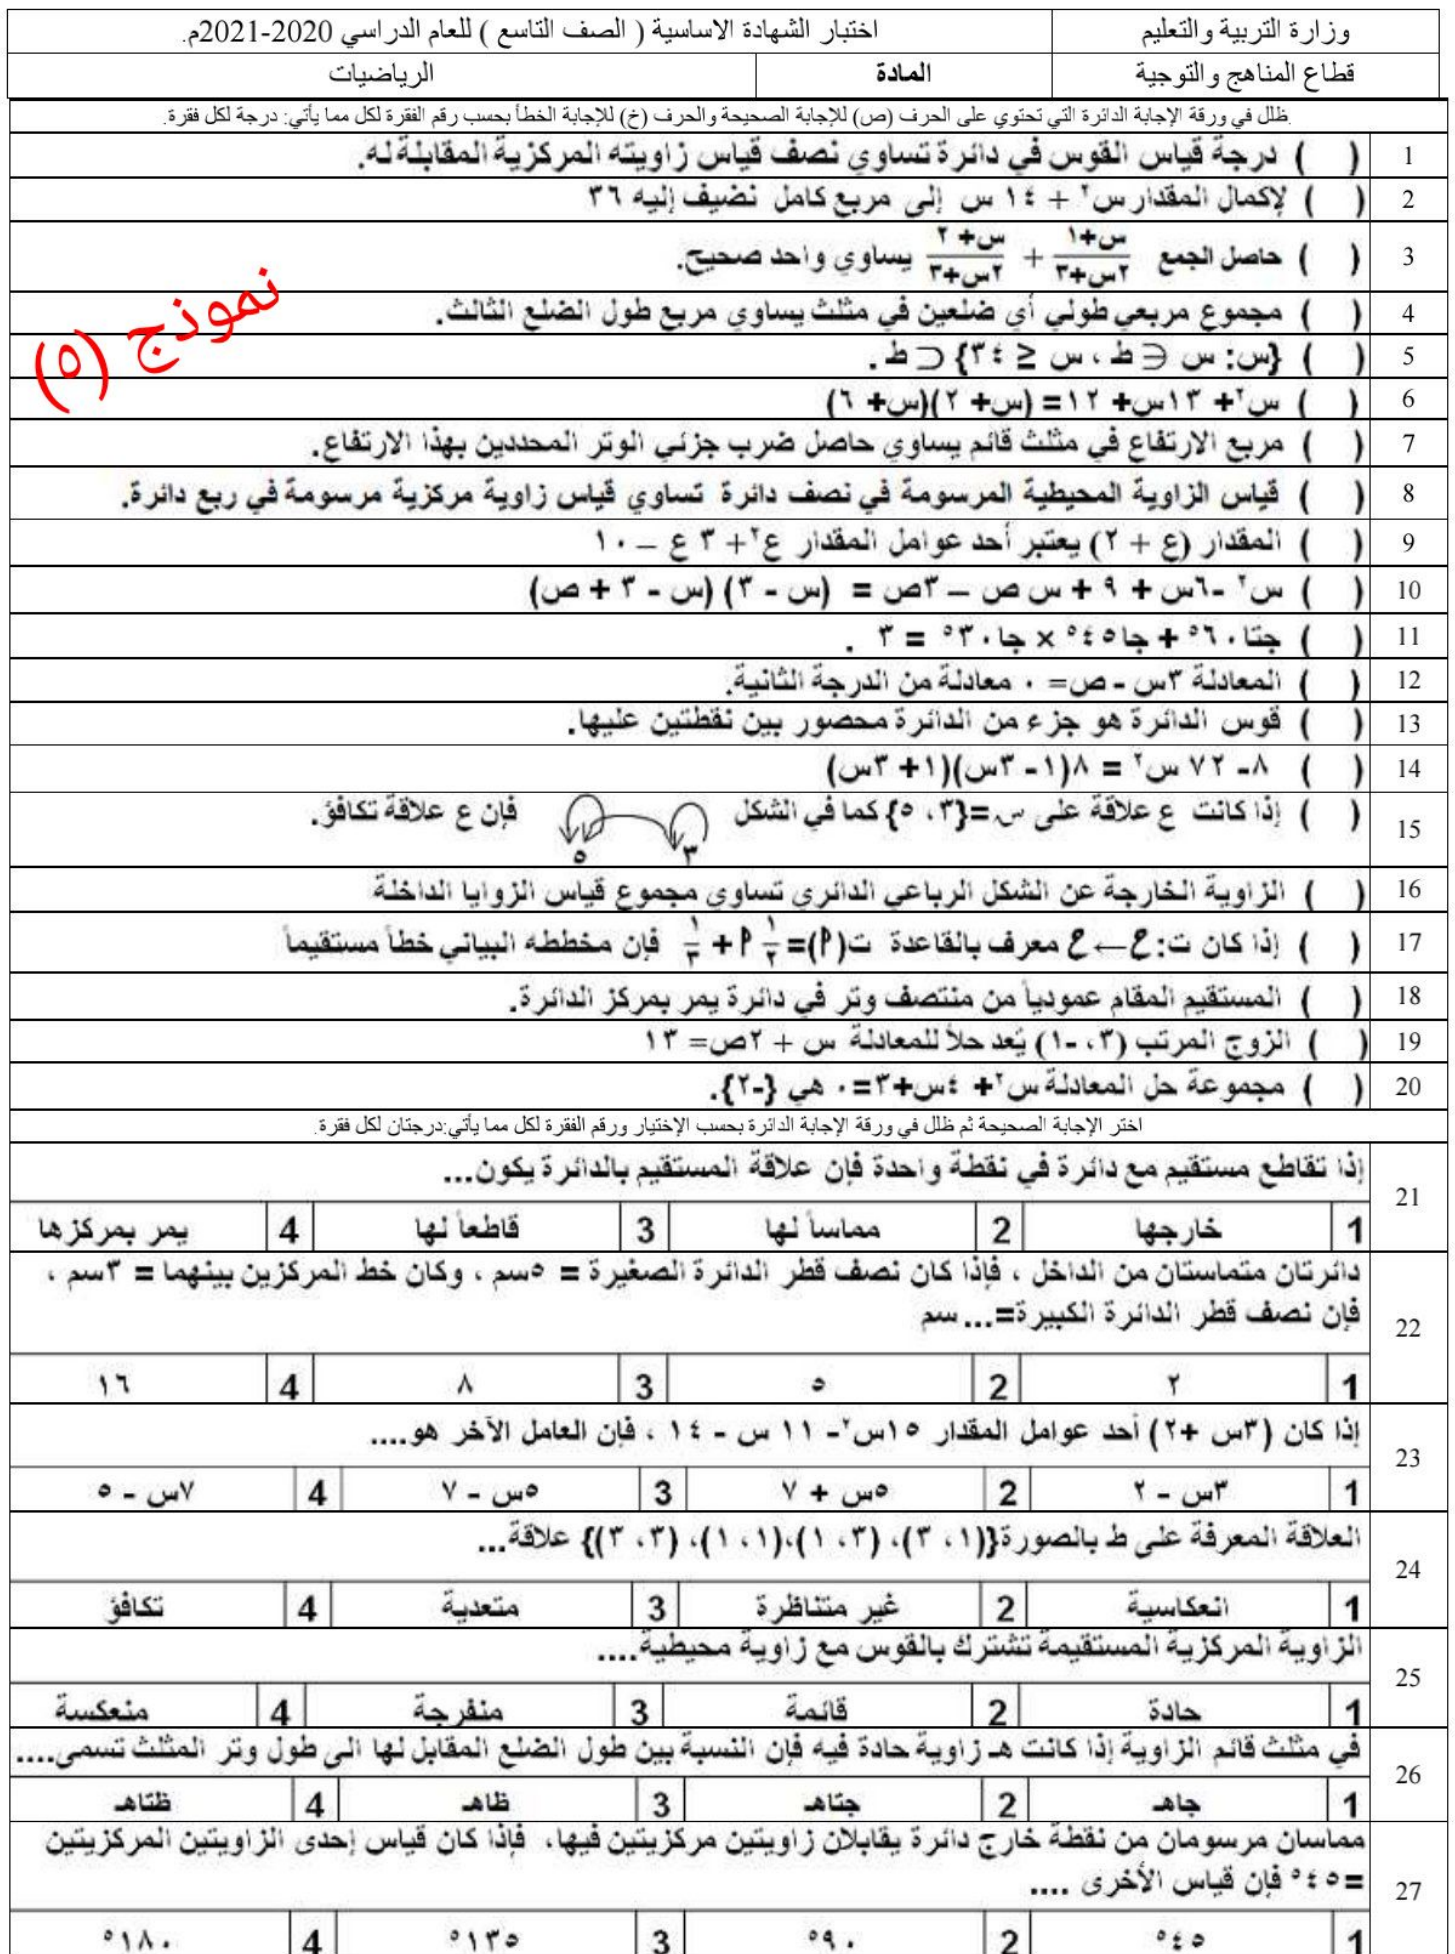 وزارة التربية والتعليم
اختبار الشهادة الاساسية ( الصف التاسع ) للعام الدراسي 2020-2021م.
قطاع المناهج والتوجية
المادة
الرياضيات
ظلل في ورقة الإجابة الدائرة التي تحتوي على الحرف (ص) للإجابة الصحيحة والحرف (خ) للإجابة الخطأ بحسب رقم الفقرة لكل مما يأتي: درجة لكل فقرة.
1 ( ) درجة قياس القوس في دائرة تساوي نصف قياس زاويته المركزية المقابلة له.
2 ( ) لإكمال المقدار س٢ + ١٤ س إلى مربع كامل نضيف إليه ٣٦
3 ( ) حاصل الجمع س+١/٢س+٣ + س+٢/٢س+٣ يساوي واحد صحيح.
4 ( ) مجموع مربعي طولي أي ضلعين في مثلث يساوي مربع طول الضلع الثالث.
نموذج (٥)
5 ( ) {س: س ∈ ط ، س ≥ ٣٤} ⊂ ط .
6 ( ) س٢+ ١٣س+ ١٢= (س+ ٢)(س+ ٦)
7 ( ) مربع الارتفاع في مثلث قائم يساوي حاصل ضرب جزئي الوتر المحددين بهذا الارتفاع.
8 ( ) قياس الزاوية المحيطية المرسومة في نصف دائرة تساوي قياس زاوية مركزية مرسومة في ربع دائرة.
9 ( ) المقدار (ع + ٢) يعتبر أحد عوامل المقدار ع٢+ ٣ ع – ١٠
10 ( ) س٢ -٦س + ٩ + س ص – ٣ص = (س - ٣) (س - ٣ + ص)
11 ( ) جتا٦٠° + جا٤٥° × جا٣٠° = ٣ .
12 ( ) المعادلة ٣س - ص= ٠ معادلة من الدرجة الثانية.
13 ( ) قوس الدائرة هو جزء من الدائرة محصور بين نقطتين عليها.
14 ( ) ٨- ٧٢ س٢ = ٨(١- ٣س)(١+ ٣س)
15 ( ) إذا كانت ع علاقة على س={٣، ٥} كما في الشكل ٣ ٥ فإن ع علاقة تكافؤ.
16 ( ) الزاوية الخارجة عن الشكل الرباعي الدائري تساوي مجموع قياس الزوايا الداخلة
17 ( ) إذا كان ت: ح ← ح معرف بالقاعدة ت(أ)= ١/٢ أ + ١/٣ فإن مخططه البياني خطاً مستقيماً
18 ( ) المستقيم المقام عمودياً من منتصف وتر في دائرة يمر بمركز الدائرة.
19 ( ) الزوج المرتب (٣، -١) يُعد حلاً للمعادلة س + ٢ص= ١٣
20 ( ) مجموعة حل المعادلة س٢+ ٤س+٣=٠ هي {-٢}.
اختر الإجابة الصحيحة ثم ظلل في ورقة الإجابة الدائرة بحسب الإختيار ورقم الفقرة لكل مما يأتي:درجتان لكل فقرة.
21 إذا تقاطع مستقيم مع دائرة في نقطة واحدة فإن علاقة المستقيم بالدائرة يكون...
1 خارجها 2 مماساً لها 3 قاطعاً لها 4 يمر بمركزها
22 دائرتان متماستان من الداخل ، فإذا كان نصف قطر الدائرة الصغيرة = ٥سم ، وكان خط المركزين بينهما = ٣سم ،
فإن نصف قطر الدائرة الكبيرة=... سم
1 ٢ 2 ٥ 3 ٨ 4 ١٦
23 إذا كان (٣س +٢) أحد عوامل المقدار ١٥س٢- ١١ س - ١٤ ، فإن العامل الآخر هو....
1 ٣س - ٢ 2 ٥س + ٧ 3 ٥س - ٧ 4 ٧س - ٥
24 العلاقة المعرفة على ط بالصورة{(١، ٣)، (٣، ١)،(١، ١)، (٣، ٣)} علاقة...
1 انعكاسية 2 غير متناظرة 3 متعدية 4 تكافؤ
25 الزاوية المركزية المستقيمة تشترك بالقوس مع زاوية محيطية....
1 حادة 2 قائمة 3 منفرجة 4 منعكسة
26 في مثلث قائم الزاوية إذا كانت هـ زاوية حادة فيه فإن النسبة بين طول الضلع المقابل لها الى طول وتر المثلث تسمى....
1 جاهـ 2 جتاهـ 3 ظاهـ 4 ظتاهـ
27 مماسان مرسومان من نقطة خارج دائرة يقابلان زاويتين مركزيتين فيها، فإذا كان قياس إحدى الزاويتين المركزيتين
=٤٥° فإن قياس الأخرى ....
1 ٤٥° 2 ٩٠° 3 ١٣٥° 4 ١٨٠°